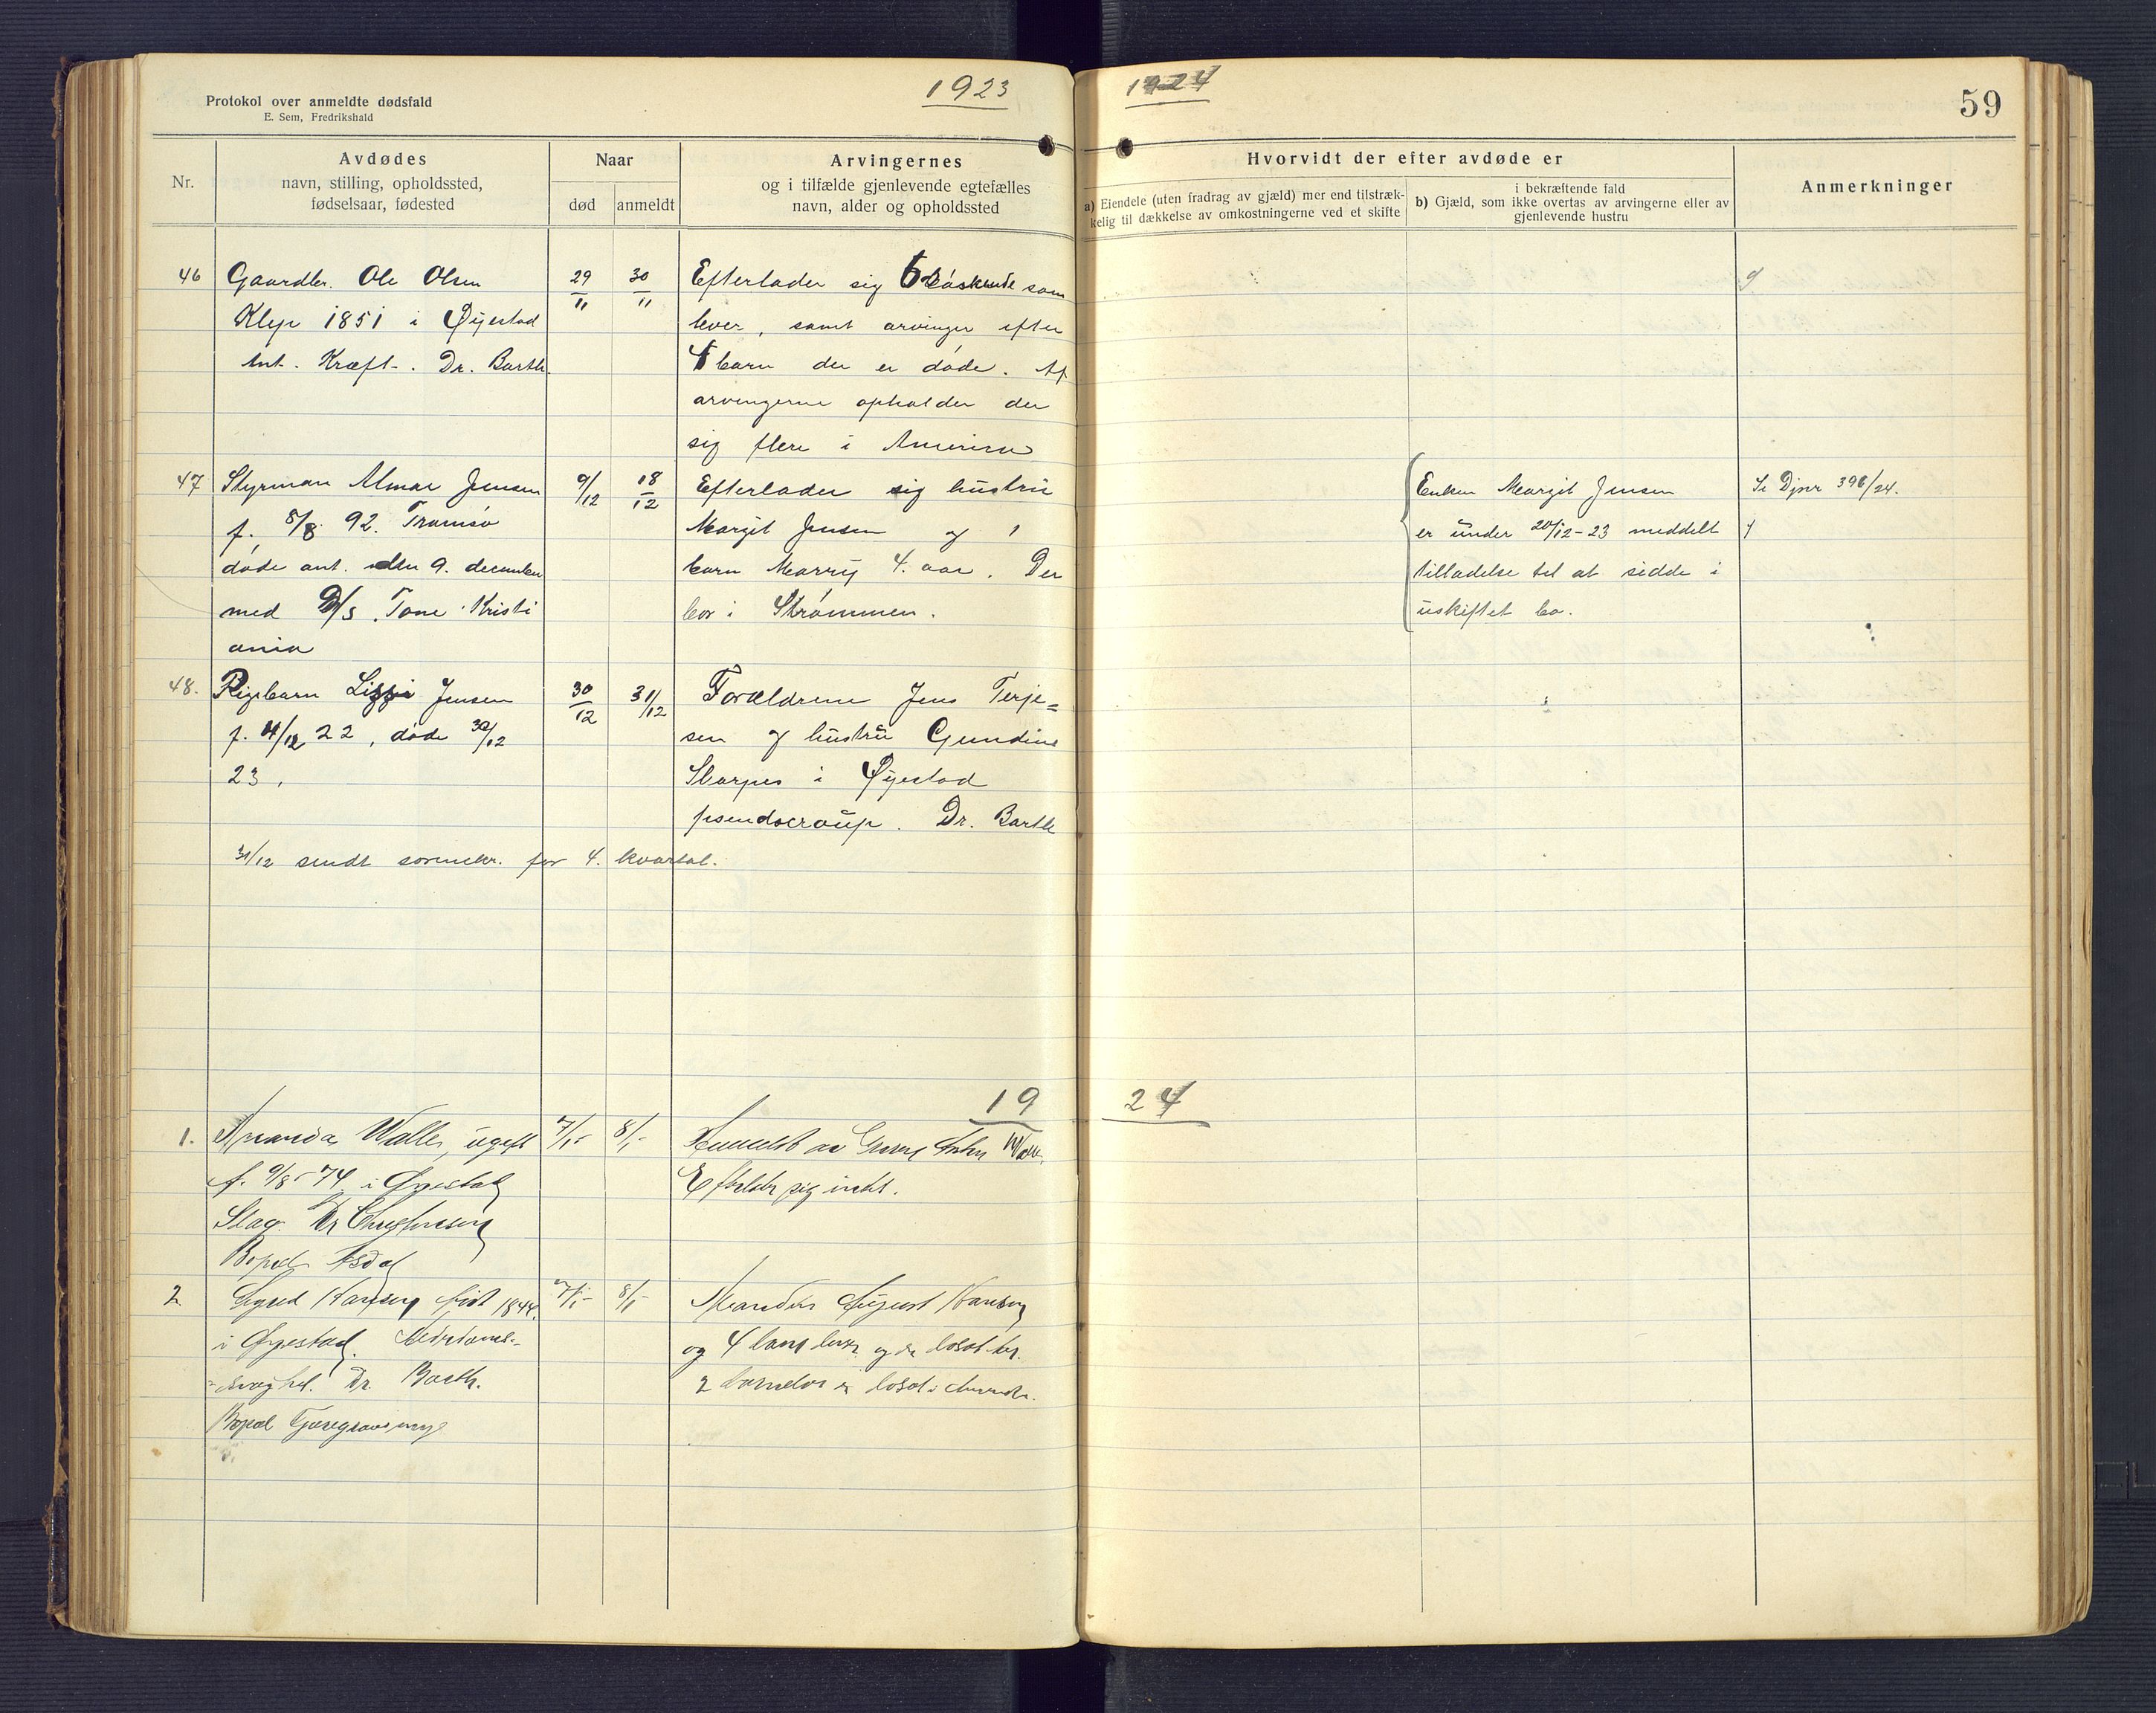 Protokol over anmeldte dødsfald
E. Sem, Fredrikshald
1923
1924
59
Nr.
Avdødes
navn, stilling, opholdssted,
fødselsaar, fødested
Naar
død
anmeldt
Arvingernes
og i tilfælde gjenlevende egtefælles
navn, alder og opholdssted
Hvorvidt der efter avdøde er
a) Eiendele (uten fradrag av gjæld) mer end tilstræk-
kelig til dækkelse av omkostningerne ved et skifte
i bekræftende fald
b) Gjæld, som ikke overtas av arvingerne eller av
gjenlevende hustru
Anmerkninger
46
Gaardbr. Ole Olsen
Klep 1851 i Øyestad
Ant. Kræft. Dr. Barth.
29/11
30/11
Efterlader sig 6 søskende som
lever, samt arvinger efter
barn der er døde. Af
arvingerne opholder der
sig flere i Amerika
47
Styrman Almar Jensen
f. 5/8 92. Tromsø
døde ant. den 9. december
med D/S. Tone Kristi
ania
9/12
18/12
Efterlader sig hustru
Margit Jensen og 1
barn Marry 4. aar. Der
bor i Strømmen.
Enken Margit Jensen
er under 20/12-23 meddelt
tilladelse til at sidde i
uskiftet bo.
Se Djnr 396/24.
48.
Pigebarn Lizzi Jensen
f. /12 22, døde 30/12
23.
30/12
31/12
Forældrene Jens Terje=
sen og hustru Gundine
Skarpes i Øyestad
pseudocroup. Dr. Barth
31/12 sendt sørnekr. for 4. kvartal.
19 24
1.
Amanda Walle, ugift
f. 9/8 74 i Øyestad
Slag. Dr Christensen
Bopæl Asdal
7/1-
8/1-
Anmeldt av Walle.
Efterlater sig intet.
2
Sigrid Hansen født 1844.
i Øyestad. Alderdoms-
svaghet. Dr. Barth.
Bopæl
7/1-
8/1-
August Hansen
og 4 barn lever og er bosat her.
2 er bosat i Amerika.